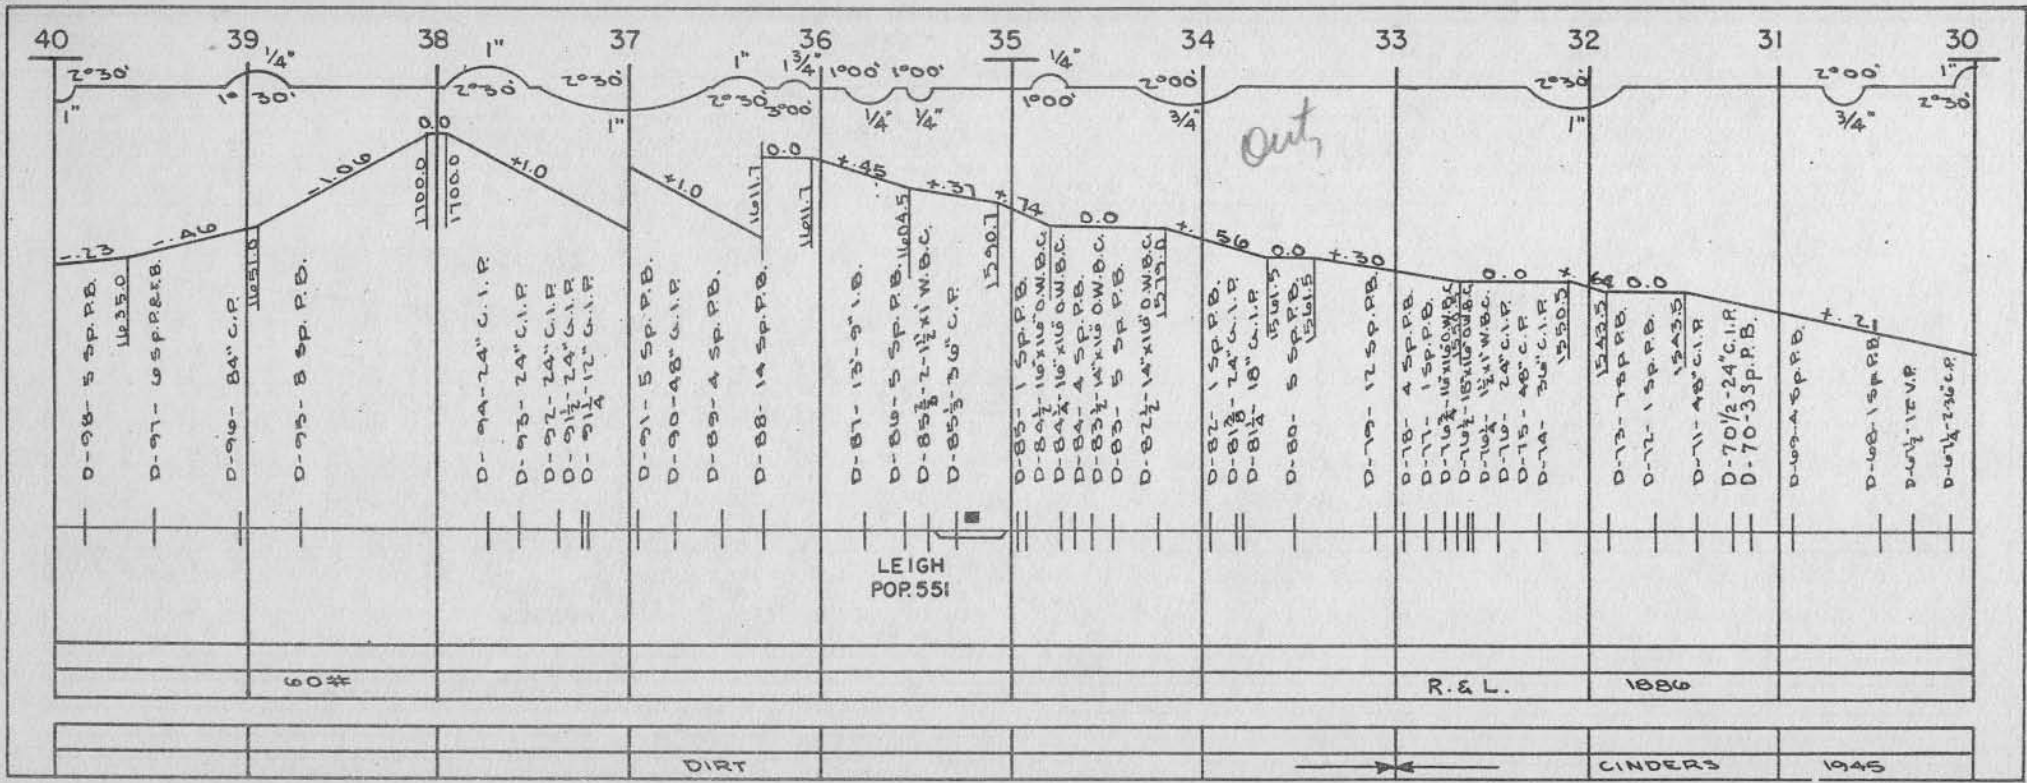 40 39 38 37 36 35 34 33 32 31 30
2°30' 1/4" 1" 2°30' 1" 1 3/4" 1°00' 1°00' 1/4" 2°00' 2°30' 2°00' 1"
1" 1° 30' 2°30' 1" 2°30' 3°00' 1/4" 1/4" 1°00' 3/4" 1" 3/4" 2°30'
Out
-.23 -.46 -1.06 0.0 +1.0 +1.0 0.0 +.45 +.37 +.74 0.0 +.56 0.0 +.30 0.0 +.64 0.0 +.21
1635.0
1651.0
1700.0
1700.0
1611.7
1611.7
1604.5
1590.7
1579.0
1561.5
1561.5
1550.5
1543.5
1543.5
D-98- 5 Sp. P.B.
D-97- 6 Sp. P.& F.B.
D-96- 84" C.P.
D-95- 8 Sp. P.B.
D-94- 24" C.I.P.
D-93- 24" C.I.P.
D-92- 24" C.I.P.
D-91 1/2- 24" C.I.P.
D-91 1/4- 12" C.I.P.
D-91- 5 Sp. P.B.
D-90- 48" C.I.P.
D-89- 4 Sp. P.B.
D-88- 14 Sp. P.B.
D-87- 13'-9" I.B.
D-86- 5 Sp. P.B.
D-85 1/3- 36" C.P.
D-85- 1 Sp. P.B.
D-84 1/2- 16"x16" O.W.B.C.
D-84 1/4- 16"x16" O.W.B.C.
D-84- 4 Sp. P.B.
D-83 1/2- 14"x16" O.W.B.C.
D-83- 5 Sp. P.B.
D-82 1/2- 14"x16" O.W.B.C.
D-82- 1 Sp. P.B.
D-81 1/4- 18" C.I.P.
D-80- 5 Sp. P.B.
D-79- 12 Sp. P.B.
D-78- 4 Sp. P.B.
D-77- 1 Sp. P.B.
D-76- 24" C.I.P.
D-75- 48" C.P.
D-74- 36" C.I.P.
D-73- 7 Sp. P.B.
D-72- 1 Sp. P.B.
D-71- 48" C.I.P.
D-70 1/2- 24" C.I.P.
D-70- 3 Sp. P.B.
D-69- 4 Sp. P.B.
D-68- 1 Sp. P.B.
D-67 1/2- 12" V.P.
D-67 1/4- 2-36" C.P.
LEIGH
POP. 551
60# R. & L. 1886
DIRT CINDERS 1945